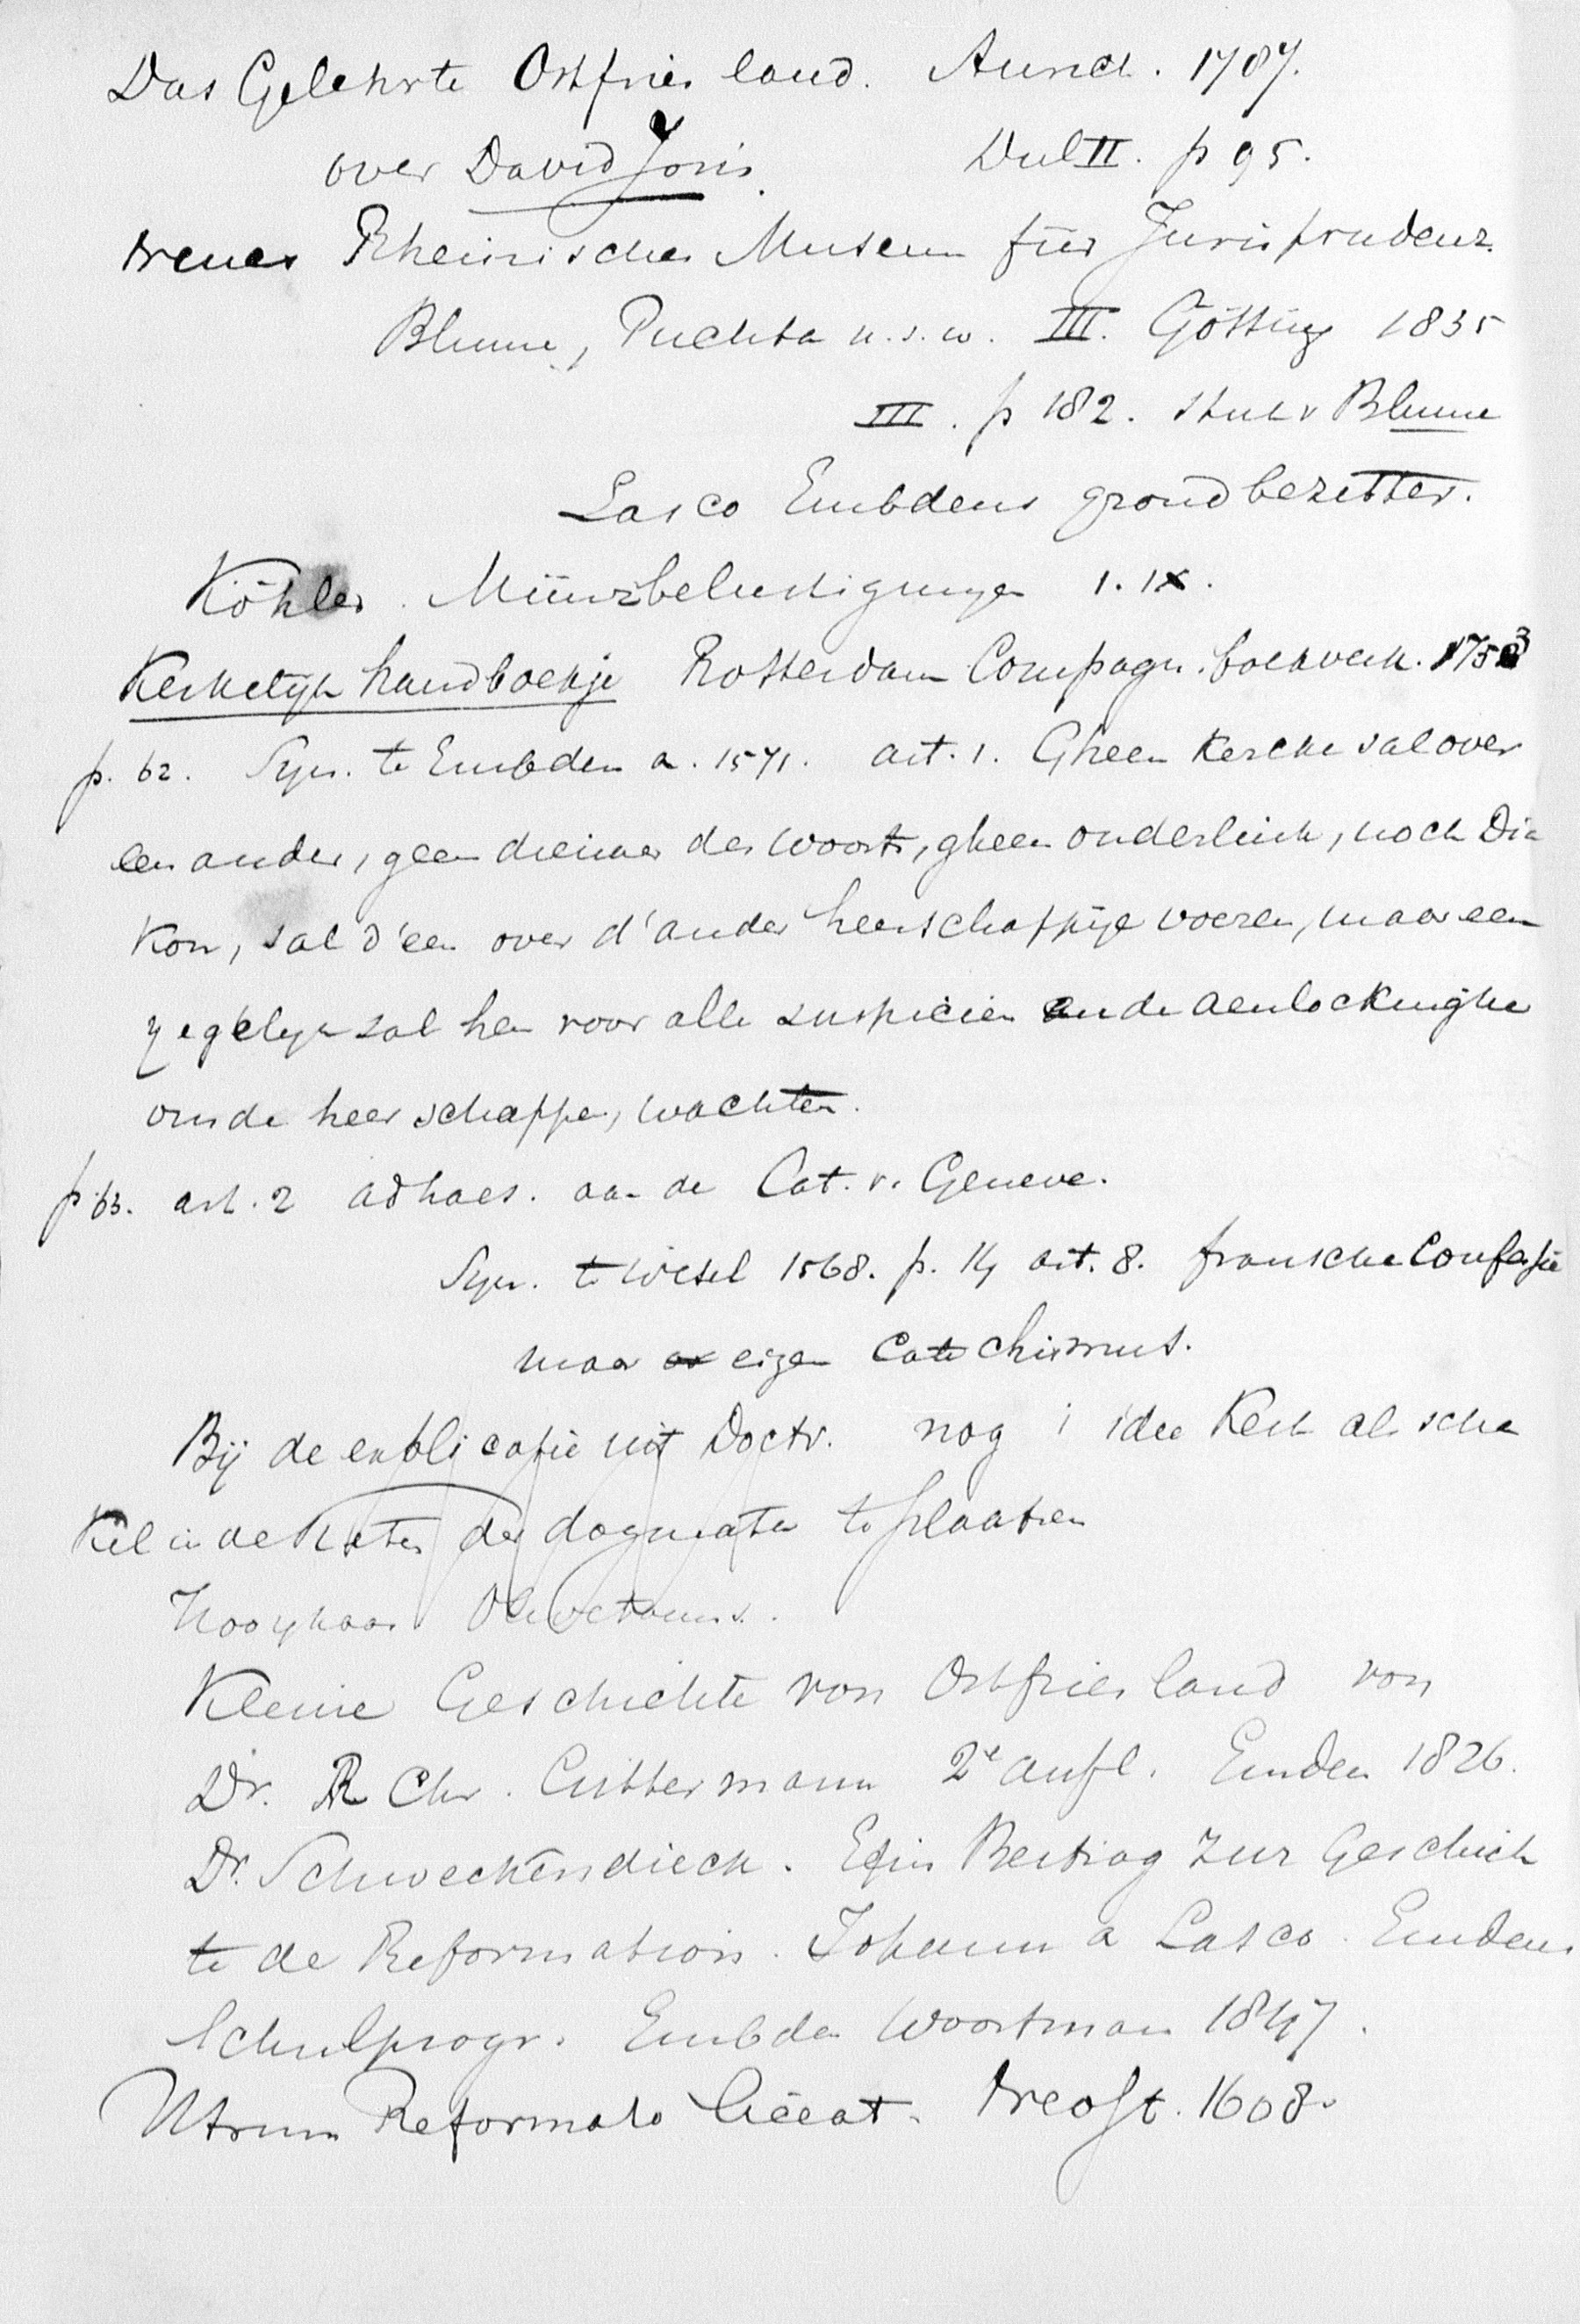 Das Gelehrte Ostfriesland. Aurich. 1787.
over David Joris. Deel II. p 95.
Neues Rheinisches Museum für Jurisprudenz.
Blume, Puchta u.s.w. III. Götting 1835
III. p 182. stuk v Blume
Lasco Embdens grondbezitter.
Köhler. Münzbelustigungen 1. IX.
Kerkelijk handboekje Rotterdam Compagn. boekverk. 1753
p. 62. Syn. te Embden a. 1571. art. 1. Gheen Kercke sal over
een ander, geen dienaer des Woorts, gheen onderlinck, noch Dia
kon, sal d'een over d'ander heerschappije voeren, maar een
yegelyk sal hen voor alle suspicien ende aenlockinghe
om de heerschappen, wachten.
p. 63. art. 2 adhaes. aan de Cat. v. Geneve.
Syn. te Wesel 1568. p. 14 art. 8. fransche Confessie
maar eigen Catechismus.
Bij de explicatie uit Doctr. nog i idee Kerk als scha
kel in de keten der dogmata te plaatsen
Hooykaas Olivetanus.
Kleine Geschichte von Ostfriesland von
Dr. R Chr. Gittermann 2e aufl. Emden 1826.
Dr. Schweckendieck. Ein Beitrag zur Geschich
te de Reformation. Johann a Lasco. Emdens
Schulprogr. Embden Woortman 1847.
Utrum Reformato liceat. 1608.